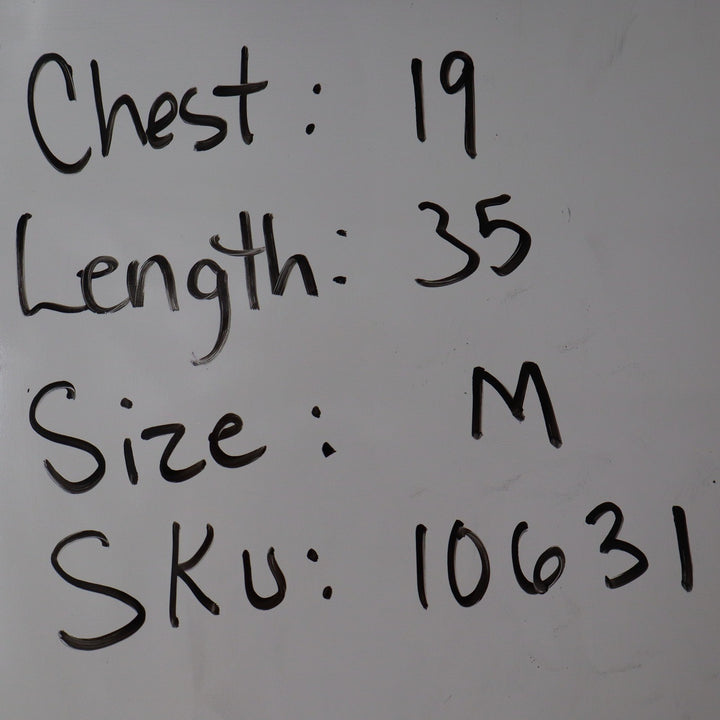 Chest: 19
Length: 35
Size: M
SKU: 10631